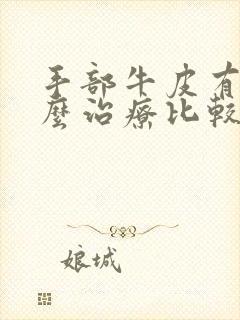 手部牛皮有
麼治療比較
娘城